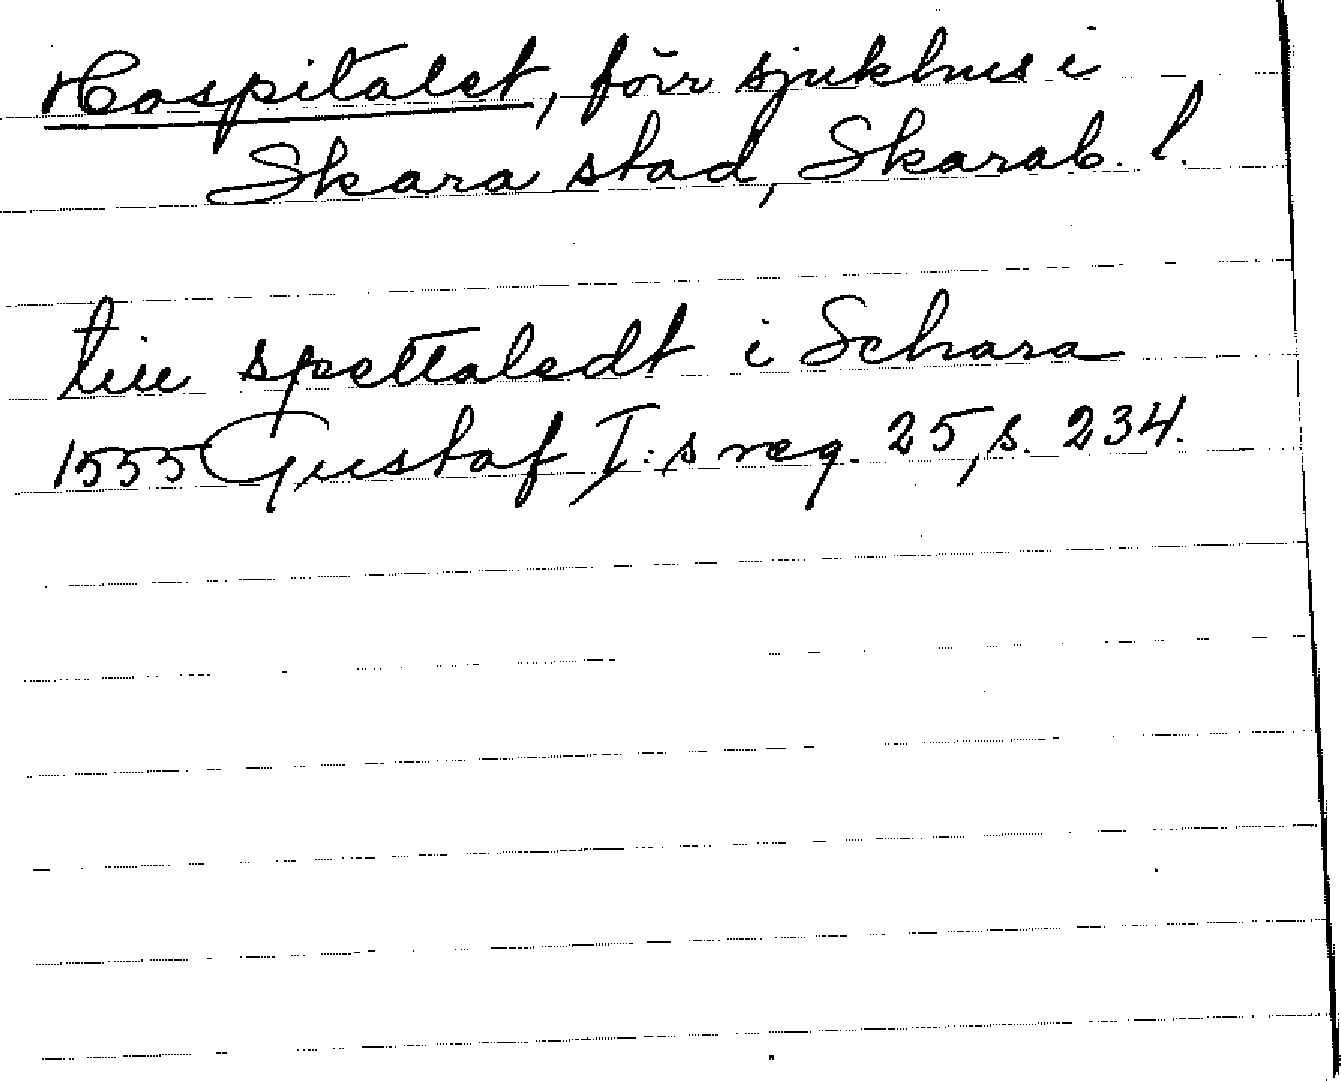 Hospitalet, förr sjukhus i
Skara stad, Skarab. l.
till spettaledt i Schara
1555 Gustaf I:s reg. 25, s. 234.